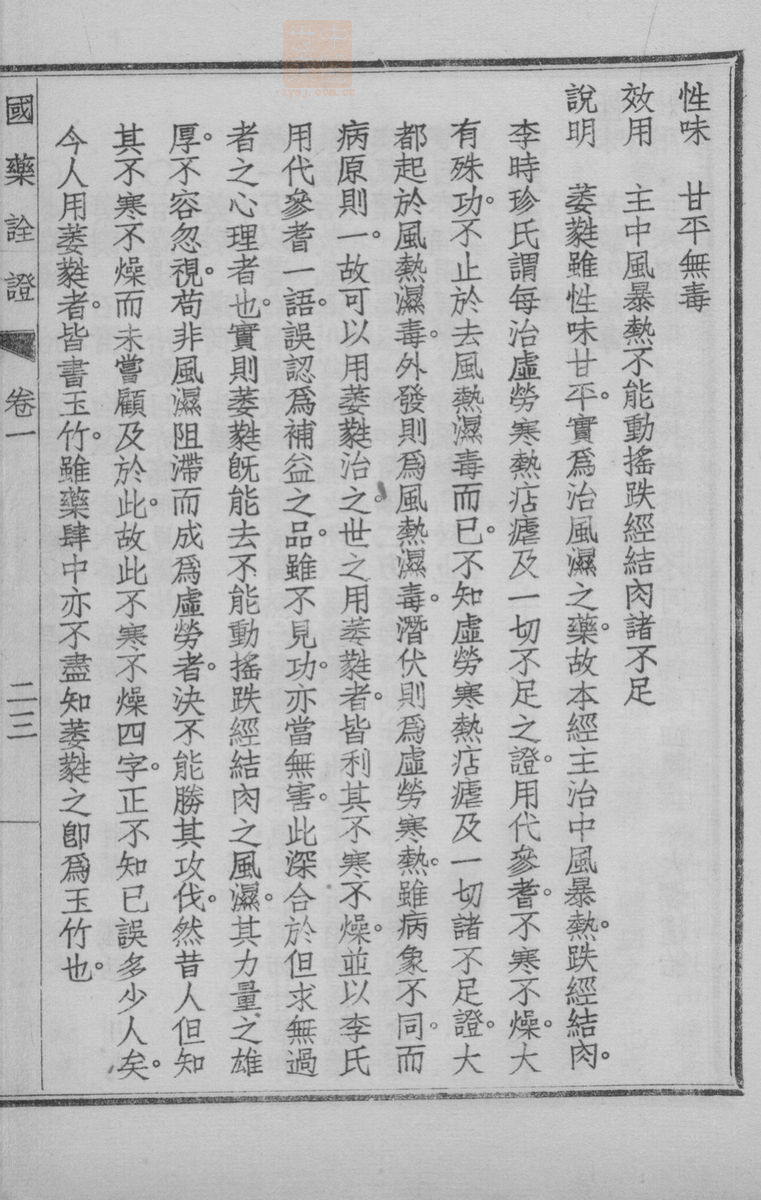 性味　甘平無毒
效用　主中風暴熱不能動搖跌經結肉諸不足
說明　萎蕤雖性味甘平。實爲治風濕之藥。故本經主治中風暴熱。跌經結肉。
李時珍氏謂每治虛勞寒熱痁瘧及一切不足之證。用代參耆。不寒不燥。大
有殊功。不止於去風熱濕毒而已。不知虛勞寒熱痁瘧及一切諸不足證。大
都起於風熱濕毒。外發則爲風熱濕毒。潛伏則爲虛勞寒熱。雖病象不同。而
病原則一。故可以用萎蕤治之。世之用萎蕤者。皆利其不寒不燥。並以李氏
用代參耆一語。誤認爲補益之品。雖不見功。亦當無害。此深合於但求無過
者之心理者也。實則萎蕤旣能去不能動搖跌經結肉之風濕。其力量之雄
厚。不容忽視。苟非風濕阻滯而成爲虛勞者。決不能勝其攻伐。然昔人但知
其不寒不燥而未嘗顧及於此。故此不寒不燥四字。正不知已誤多少人矣。
今人用萎蕤者。皆書玉竹。雖藥肆中亦不盡知萎蕤之卽爲玉竹也。
國藥詮證　卷一　二三